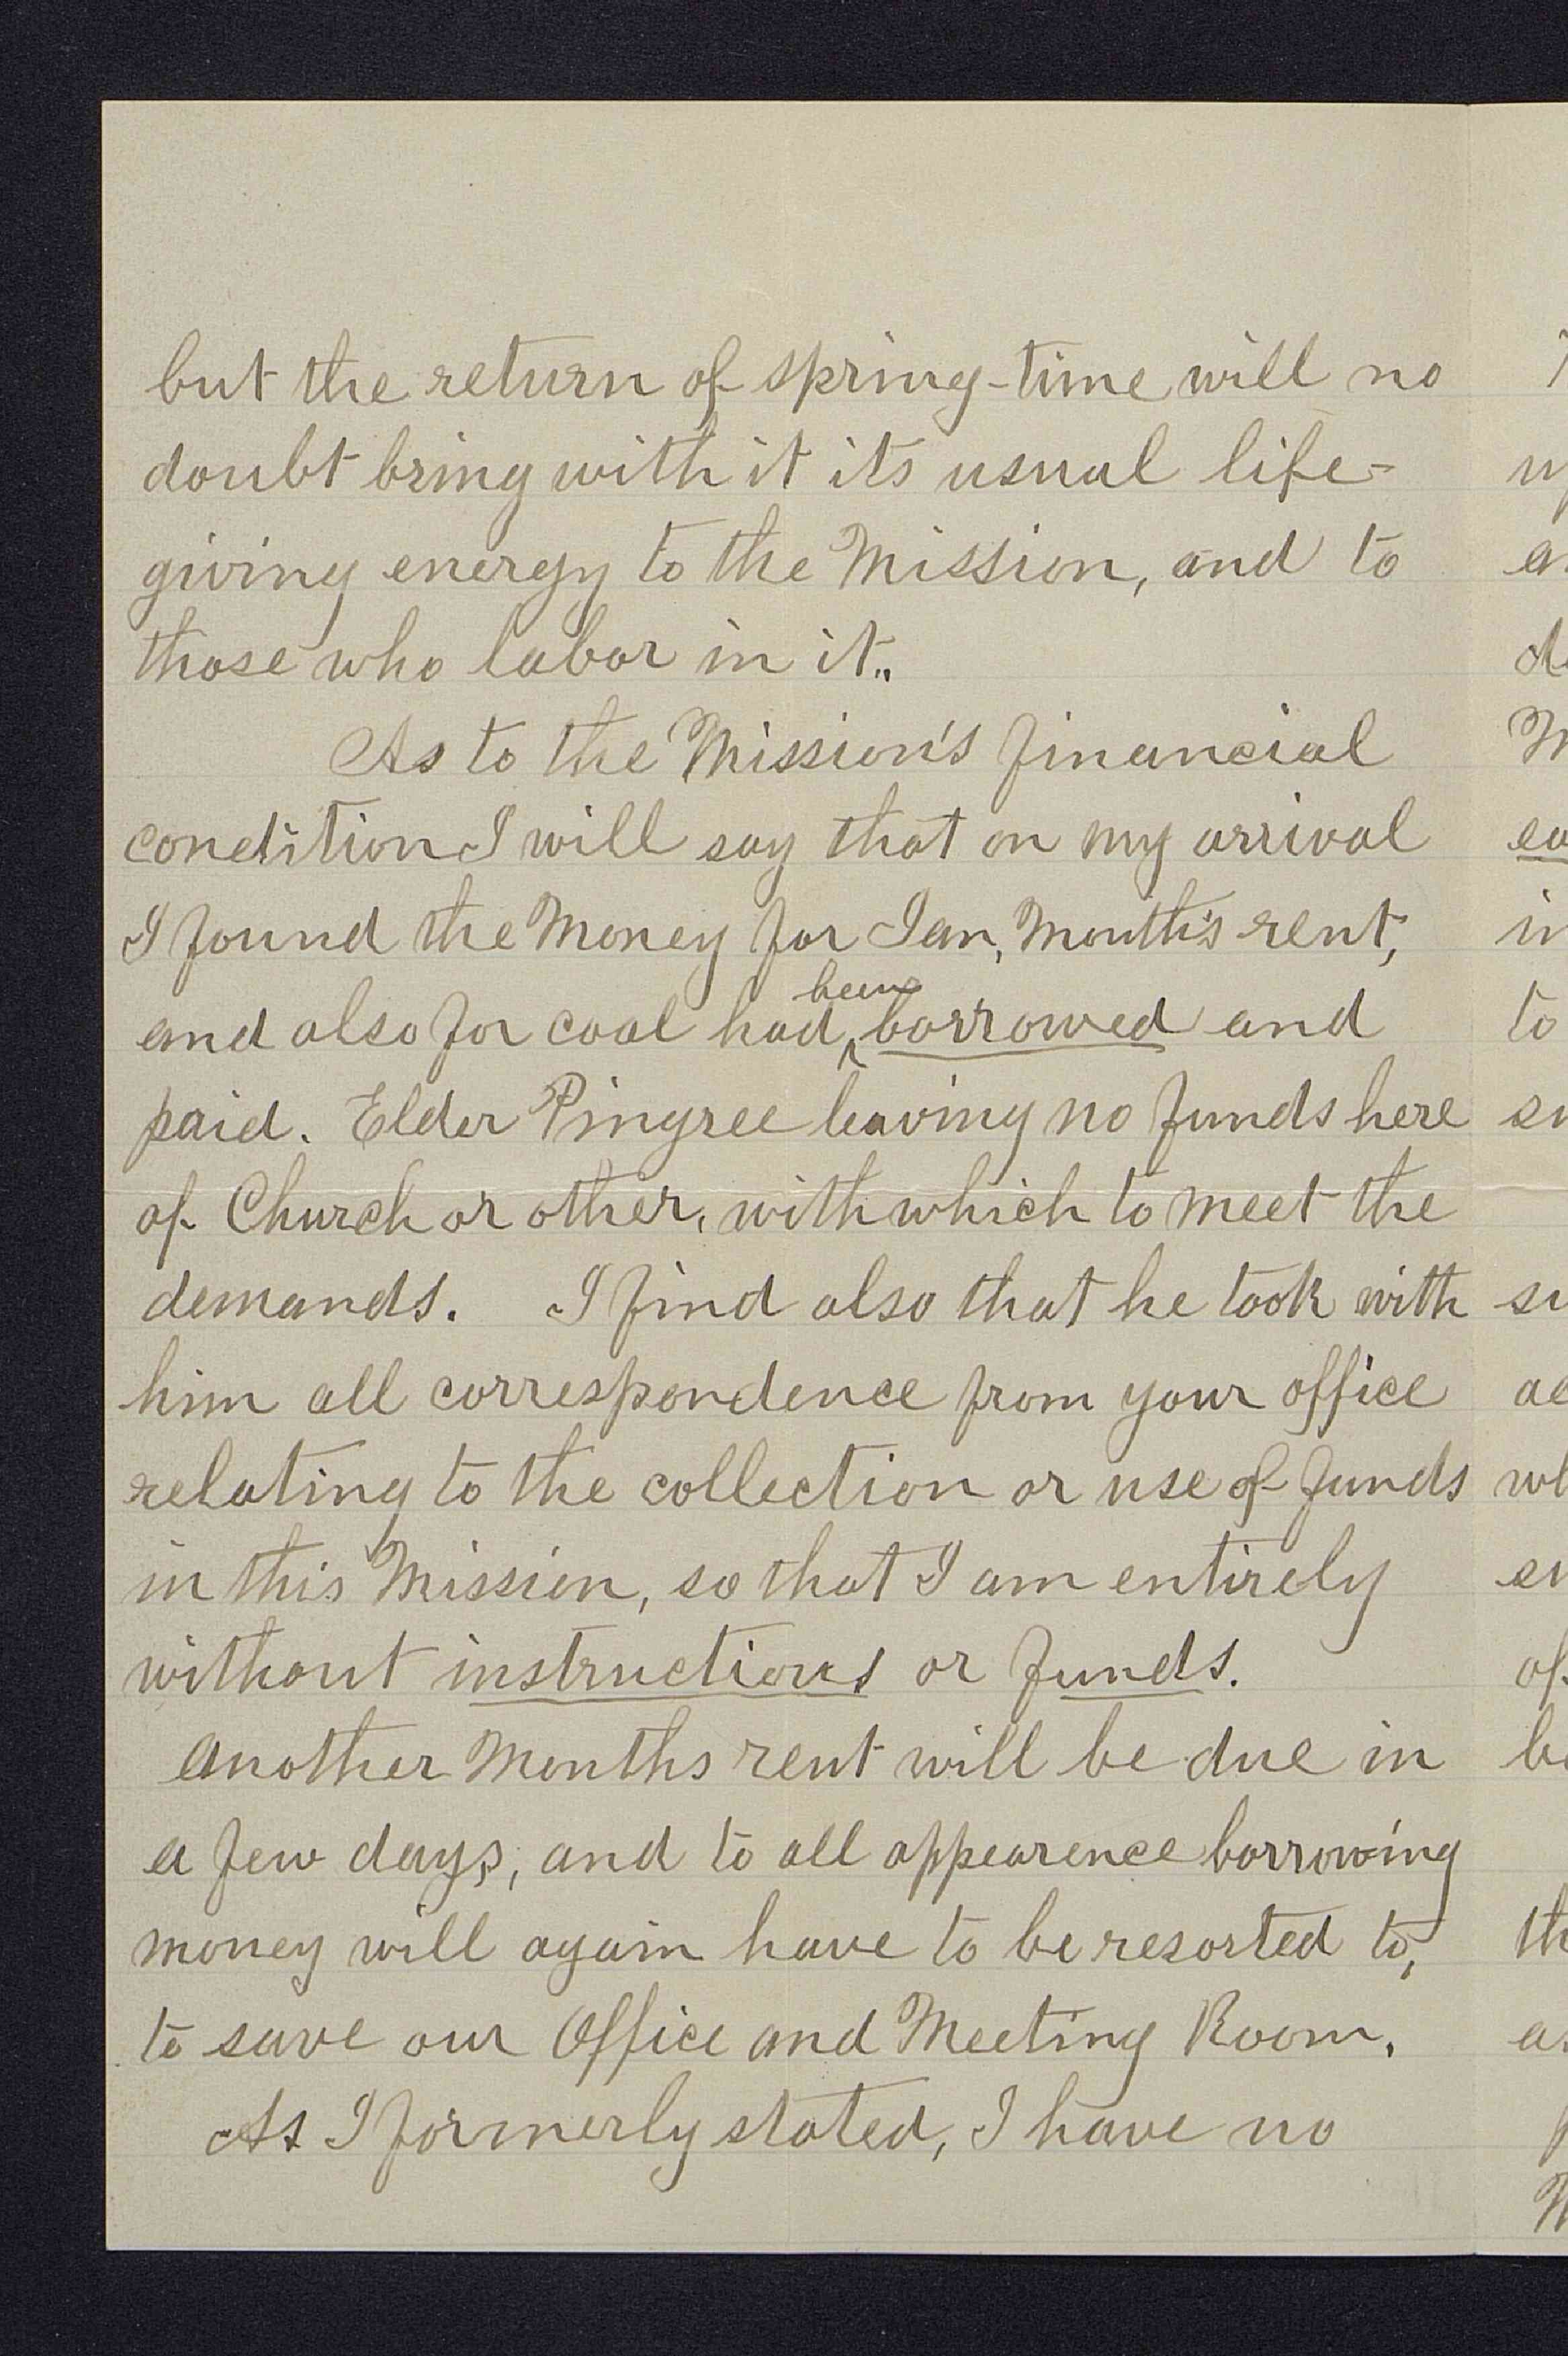 but the return of spring-time will no
doubt bring with it its usual life-
giving energy to the Mission, and to
those who labor in it..
As to the Mission's financial
condition I will say that on my arrival
I found the Money for Jan, Month's rent,
and also for coal had been borrowed and
paid. Elder Pingree leaving no funds here
of Church or other, with which to meet the
demands. I find also that he took with
him all correspondence from your office
relating to the collection or use of funds
in this Mission, so that I am entirely
without instructions or funds.
another Months rent will be due in
a few days, and to all appearence borrowing
money will again have to be resorted to,
to save our Office and Meeting Room.
As I formerly stated, I have no